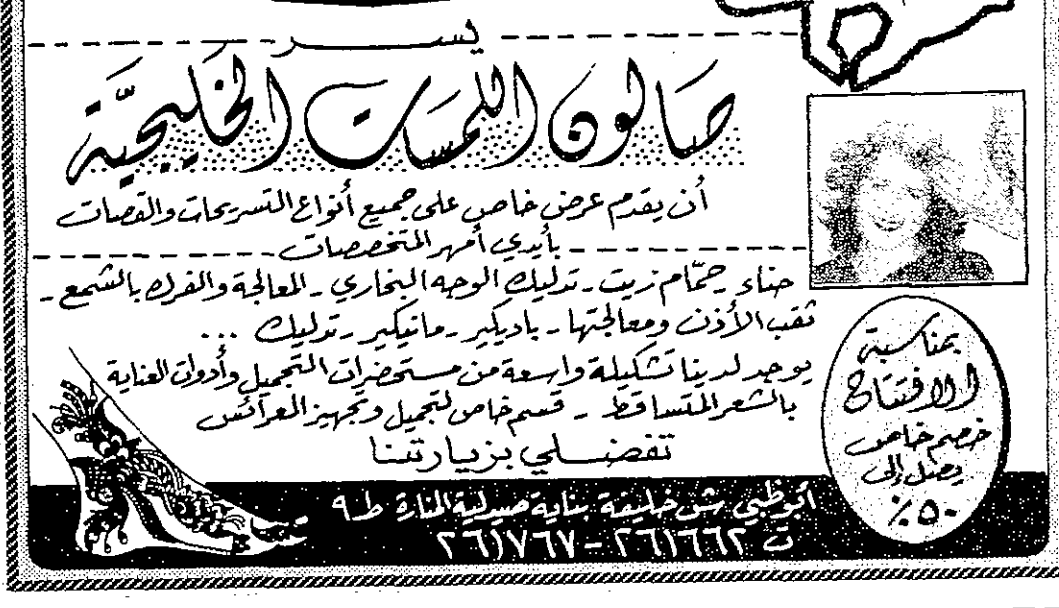 يسر
صالون اللمسات الخليجية
أن يقدم عرض خاص على جميع أنواع التسريحات والقصات
بأيدي أمهر المتخصصات
حناء - حمّام زيت - تدليك الوجه البخاري - المعالجة والفرك بالشمع -
ثقب الأذن ومعالجتها - باديكير - مانيكير - تدليك ...
يوجد لدينا تشكيلة واسعة من مستحضرات التجميل وأدوات العناية
بالشعر المتساقط - قسم خاص لتجميل وتجهيز العرائس
تفضلي بزيارتنا
بمناسبة
الافتتاح
خصم خاص
يصل إلى
٥٠٪
أبوظبي ش خليفة بناية صيدلية المنارة ط ٩
ت ٢٦١٦٦٢ - ٢٦١٧٦٧